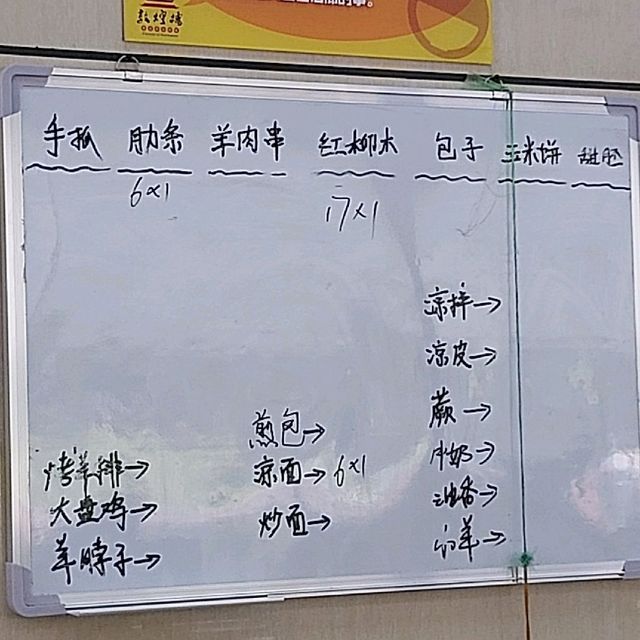 敦煌楼
手抓 肋条 羊肉串 红柳木 包子 玉米饼 甜胚
6×1 17×1
凉拌→
凉皮→
蕨→
牛奶→
油香→
羊→
煎包→
凉面→ 6×1
炒面→
烤羊排→
大盘鸡→
羊脖子→